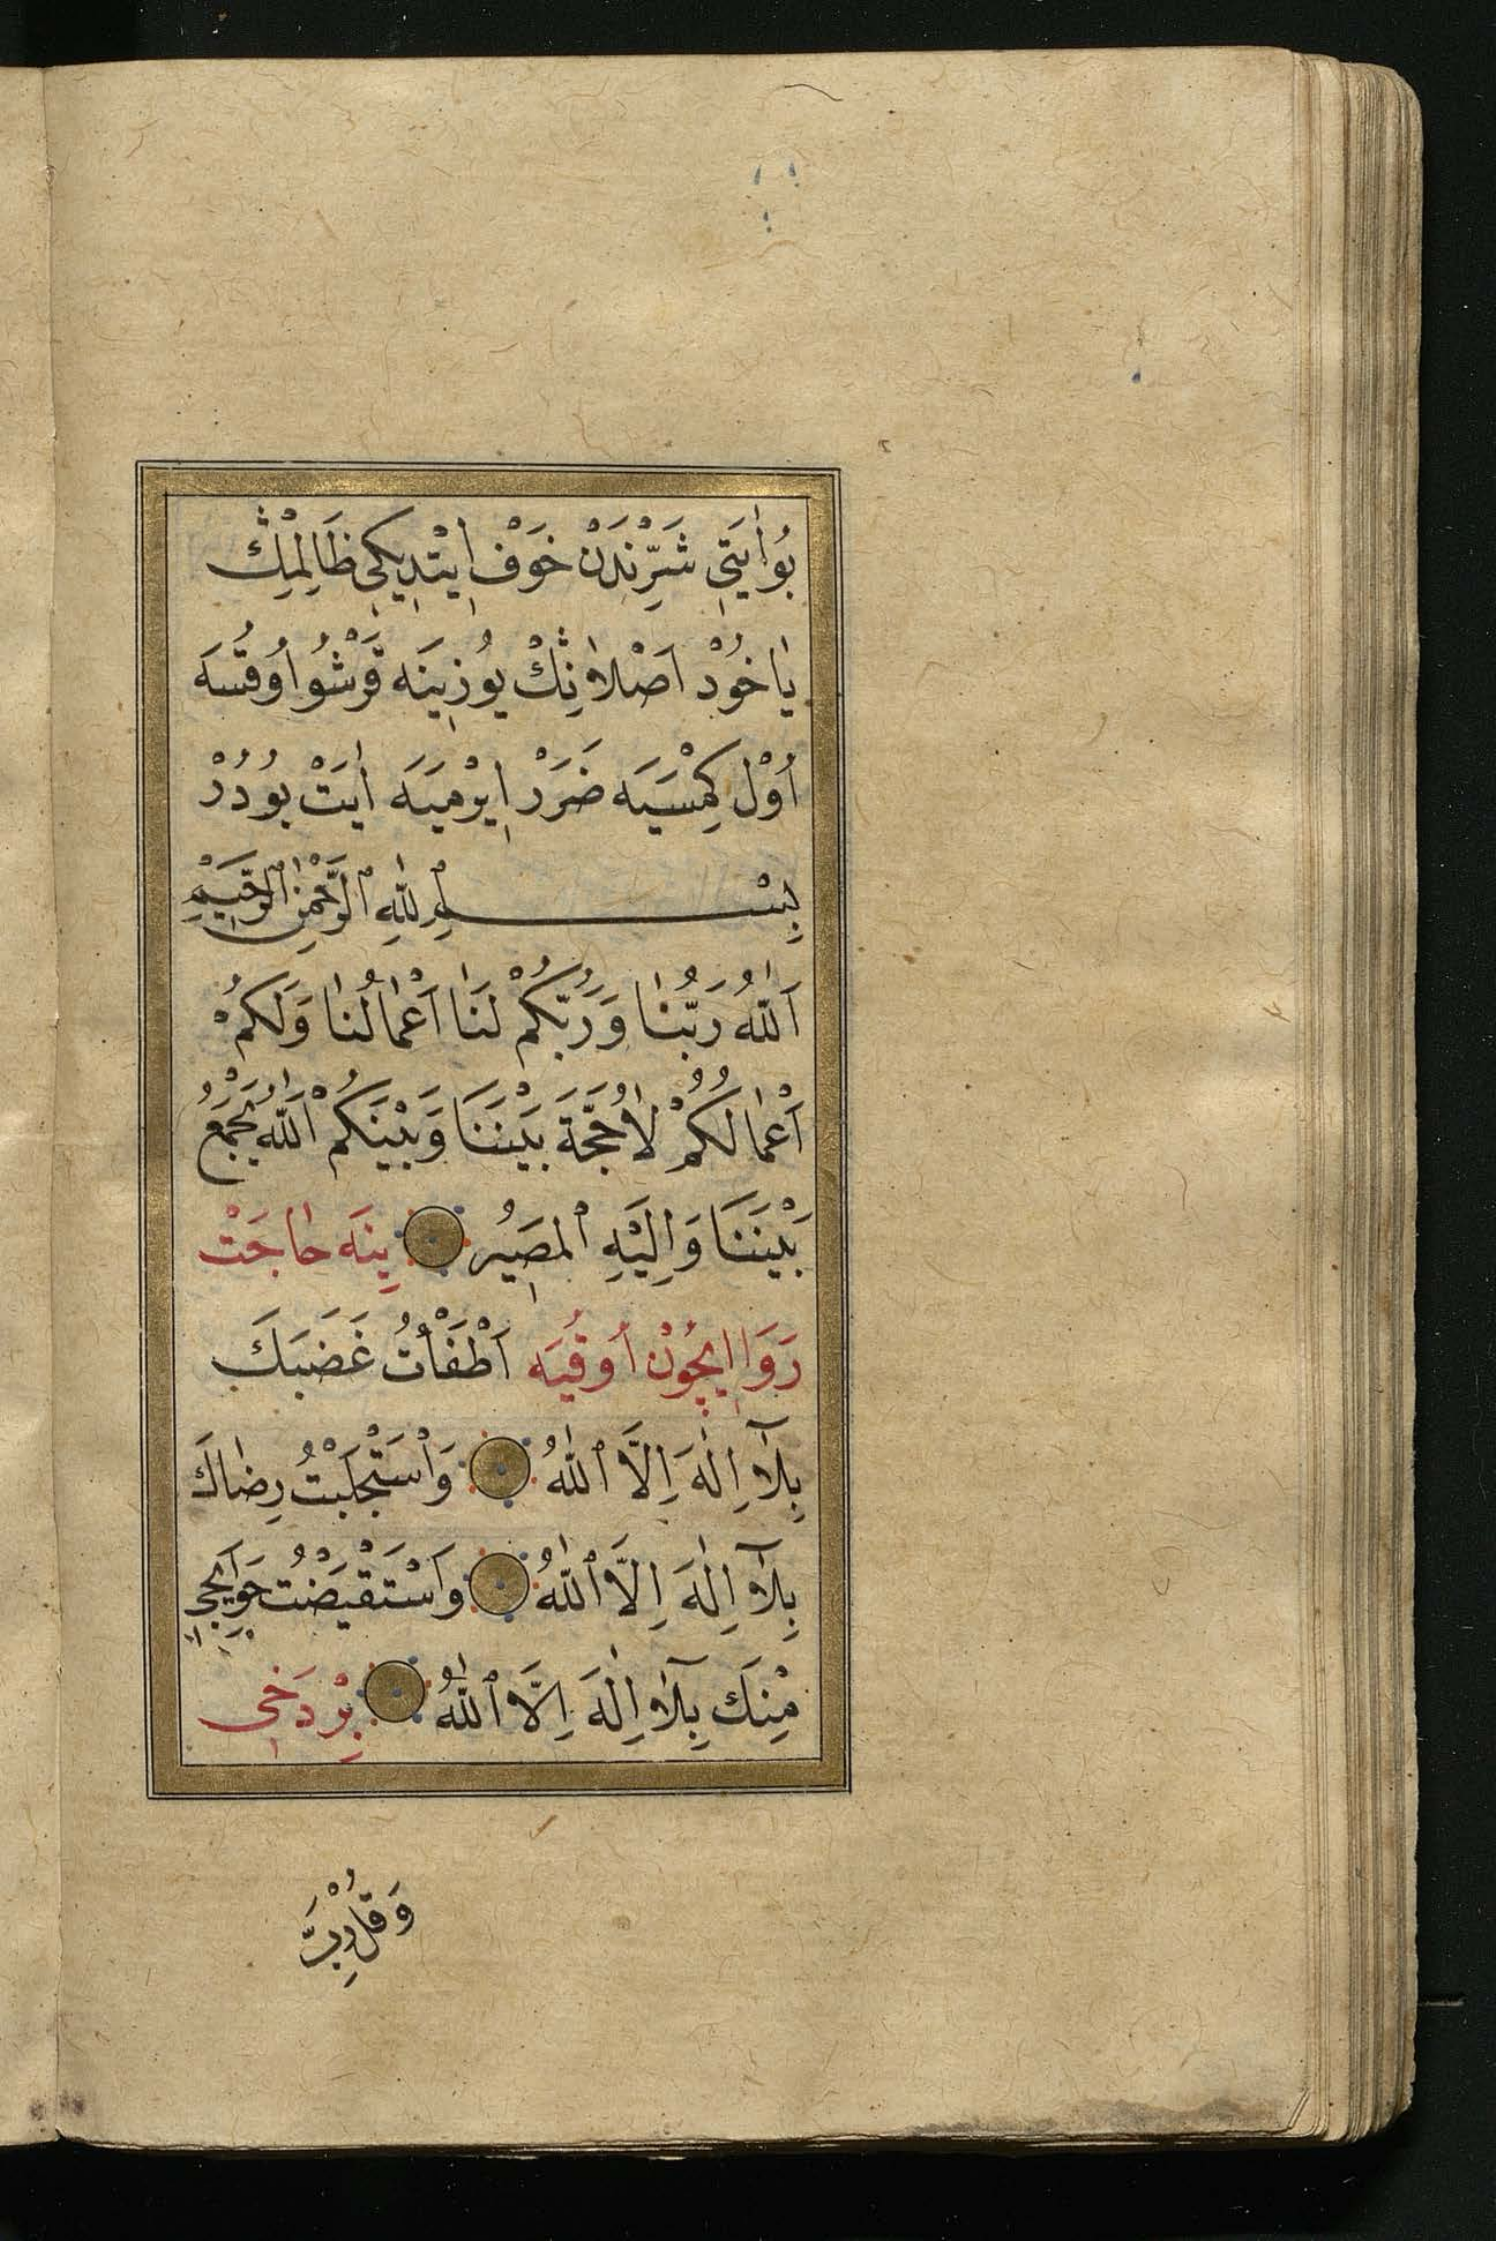 بُو اٰيَتِي شَرِّنْدَنْ خَوْف اِيْتْدِيكِي ظَالِمْلِڭ
يٰاخُوْد اَصْلاٰنِڭْ يُوزِينَه قَرْشُو اُوقُسَه
اُوْل كِمْسَيَه ضَرَرْ اِيرْمَيَه اٰيَتْ بُودُرْ
بِسْمِ اللّٰهِ الرَّحْمٰنِ الرَّحِيمِ
اَللّٰهُ رَبُّنٰا وَرَبُّكُمْ لَنٰا اَعْمٰالُنٰا وَلَكُمْ
اَعْمٰالُكُمْ لاٰحُجَّةَ بَيْنَنَا وَبَيْنَكُمْ اَللّٰهُ يَجْمَعُ
بَيْنَنَا وَاِلَيْهِ الْمَصِيرُ يِنَه حٰاجَتْ
رَوَا اِيچُونْ اُوقُيَه اَطْفَأْتُ غَضَبَكَ
بِلَآ اِلٰهَ اِلَّا اللّٰهُ وَاْسْتَجْلَبْتُ رِضٰاكَ
بِلَآ اِلٰهَ اِلَّا اللّٰهُ وَاسْتَقْيَضْتُ حَوَايِجِي
مِنْكَ بِلَآ اِلٰهَ اِلَّا اللّٰهُ بِرْ دَخِي
وَقُلْ رَبِّ